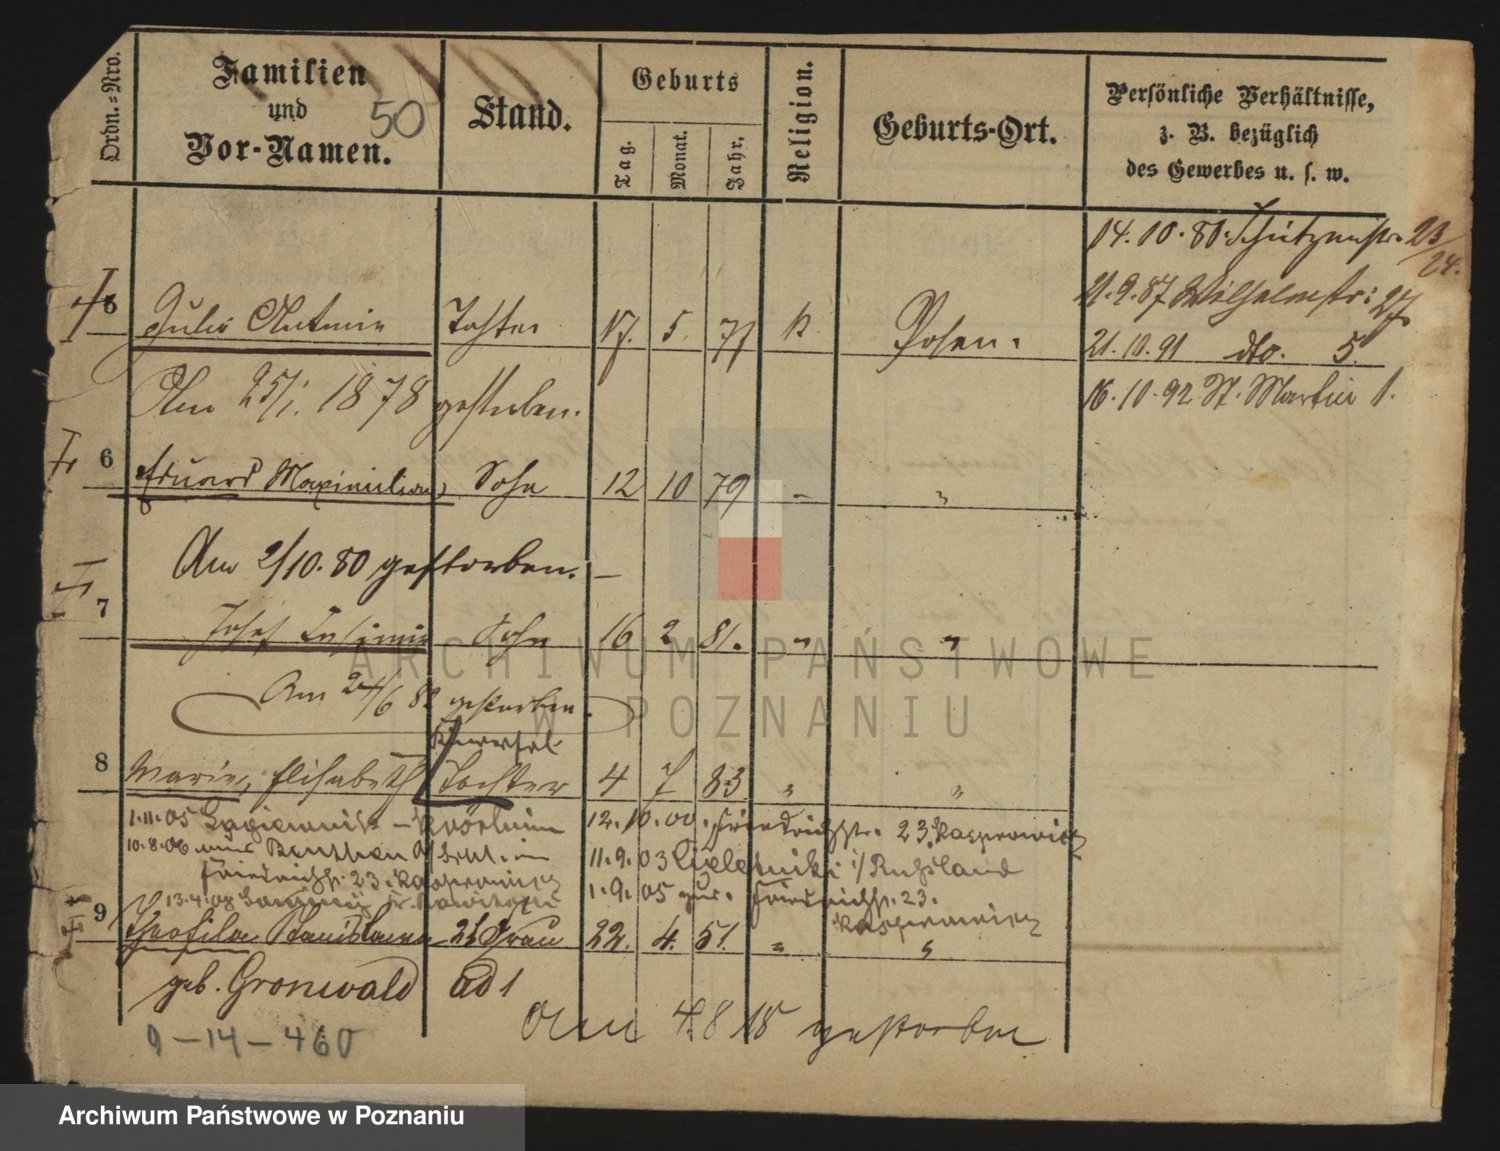 Ordn.=Nro.
Familien
und
Vor-Namen.
50
Stand.
Geburts
Tag.
Monat.
Jahr.
Religion.
Geburts-Ort.
Persönliche Verhältnisse,
z. B. bezüglich
des Gewerbes u. s. w.
14.10.81. Schützenstr. 23/24.
21.9.87 Wilhelmstr: 27
5 Tochter 17. 5. 77 k Posen.
21.10.91 dto. 5.
Am 25/1. 1878 gestorben.
16.10.92 St. Martin 1.
6 Eduard Maximilian, Sohn 12 10 79 - "
Am 2/10.80 gestorben. -
7 Josef Sohn 16 2 81. " "
Am 24/6 82 gestorben.
8 Marie, Elisabeth Tochter 4 7 83 " "
1.11.05
12.10.00. Friedrichstr. 23. Kasprowicz
10.8.06 Beuthen
11.9.03 i/Russland
Friedrichstr. 23. Kasprowicz
1.9.05 zur. Friedrichstr. 23.
13.4.08
Kasprowicz
9 Theofila Stanislawa 2t Frau 22. 4. 51. " "
geb. Gronwald ad 1
Am 4.8 18 gestorben
9-14-460
ARCHIWUM PAŃSTWOWE
W POZNANIU
Archiwum Państwowe w Poznaniu